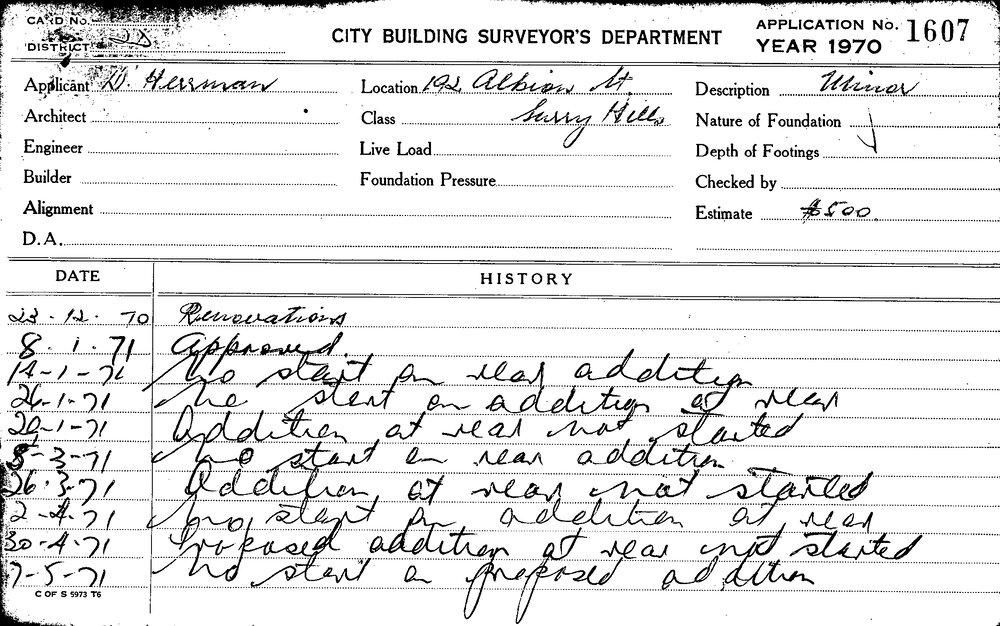 CARD No.
DISTRICT
CITY BUILDING SURVEYOR'S DEPARTMENT
APPLICATION No. 1607
YEAR 1970
Applicant D. Herrman
Location 192 Albion St.
Description Minor
Architect
Class Surry Hills
Nature of Foundation
Engineer
Live Load
Depth of Footings
Builder
Foundation Pressure
Checked by
Alignment
Estimate $500.
D.A.
DATE HISTORY
23.12.70 Renovations
8.1.71 Approved.
14-1-71 No start on rear addition
26-1-71 No start on addition at rear
20-1-71 Addition at rear not started
8-3-71 No start on rear addition
26.3.71 Addition at rear not started
2-4-71 No start on addition at rear
30-4-71 Proposed addition at rear not started
7-5-71 No start on proposed addition
C OF S 5973 T6